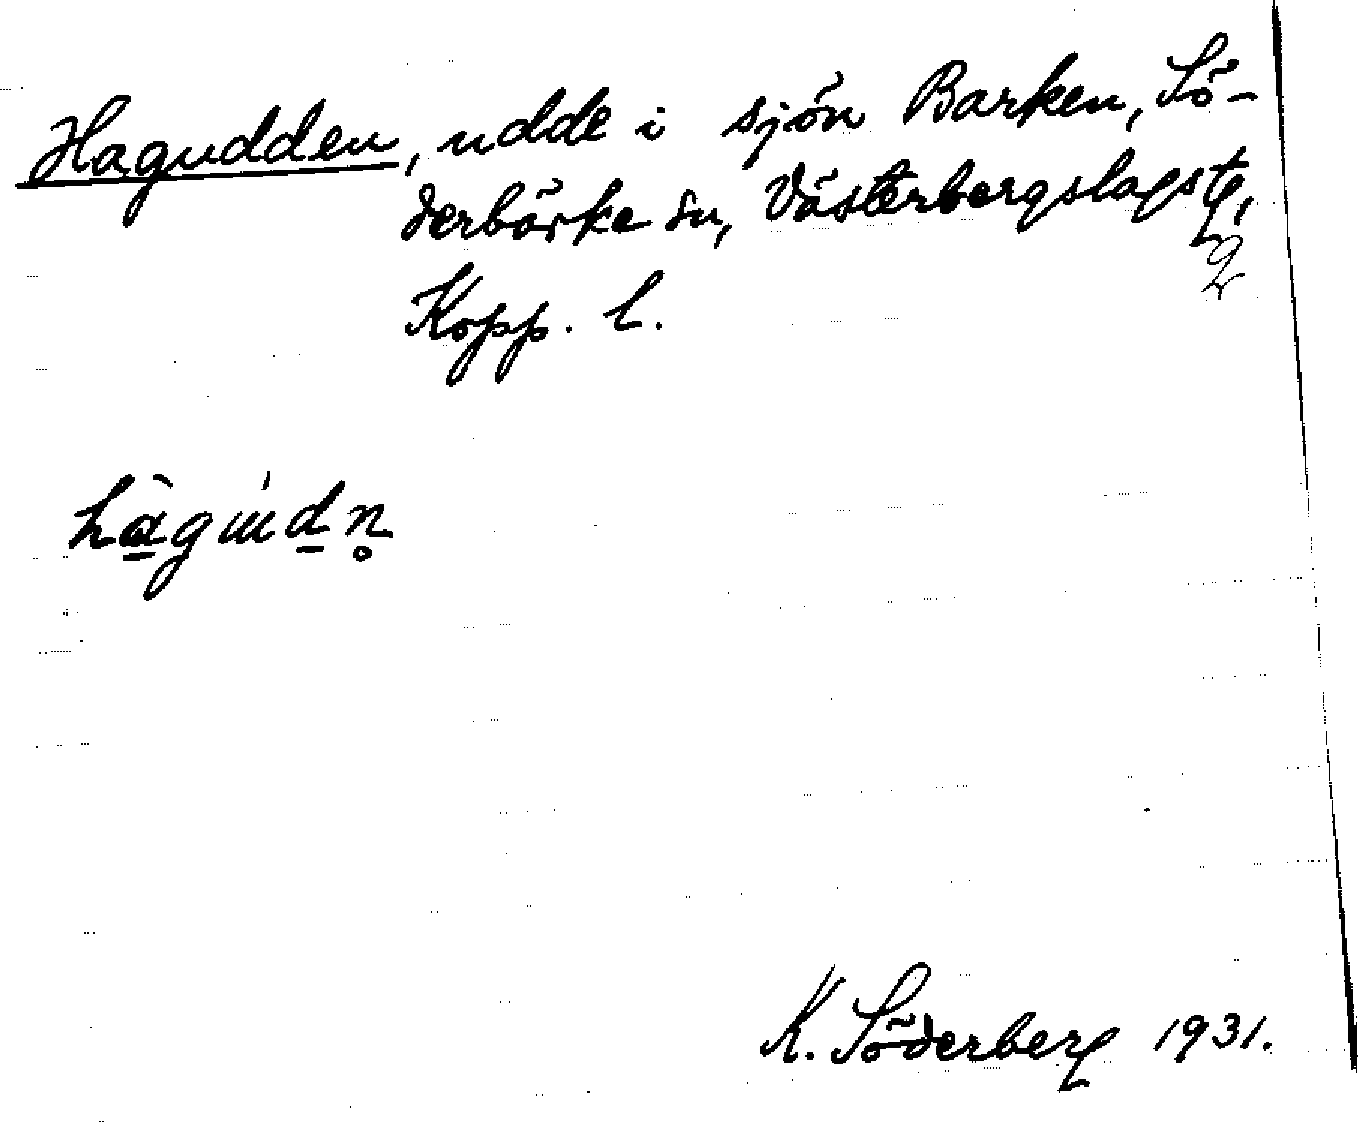 Hagudden, udde i sjön Barken, Sö-
derbärke sn, Västerbergslags tg,
Kopp. l.
K. Söderberg 1931.